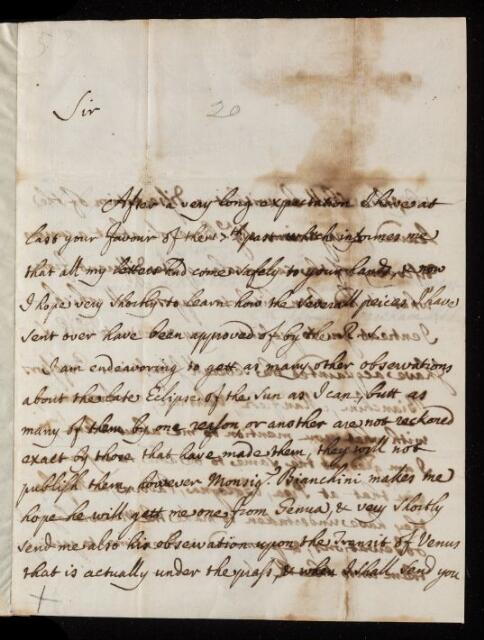 20
Sir
After a very long expectation I have at
last your favour of the past which informes me
that all my letters had come safely to your hands, & now
I hope very shortly to learn how the severall peices I have
sent over have been approved of by the R.
I am endeavoring to gett as many other obserwations
about the late Eclipse of the Sun as I can, butt as
many of them by one reason or another are not reckored
exact by those that have made them, they will not
publish them, however Monsigr. Bianchini makes me
hope he will gett me one from Genua, & very shortly
send me also his obserwation upon the Transit of Venus
that is actually under the press, & when I shall send you